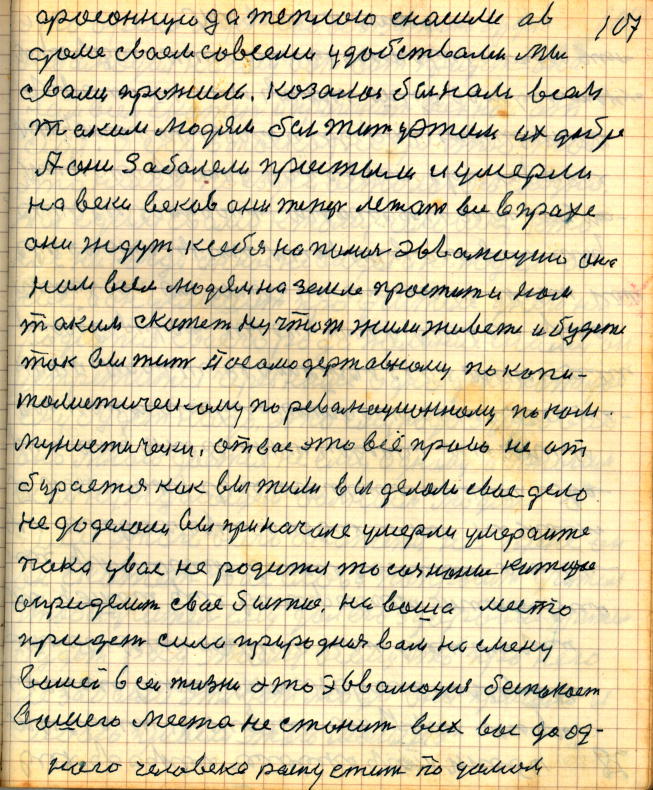 107
фасонную да теплою снасили а в
доме сваем совсеми удобствами ми
свами прожили. козалос бы нам всем
таким людям бы жит и этим их добре
А они заболели простыли и умерли
на веки веков они тепер лежат все в прахе
они ждут ксебя на помоч эввалюцию она
нам всем людям на земле простит и нам
таким скажет ну чтож жили живете и будете
так вы жит посамодержавному по копи-
толистическому по революционному по ком
мунистически. от вас это всё право не от
бирается как вы жили вы делали свае дело
не доделали вы при начале умерли умераите
пака у вас не родится то сознание каторое
определит свае бытие. на ваша место
придет сила природная вам на смену
вашей всей жизни это эввалюция
вашего места не станит всех вас до од-
ного человека распустит по домам